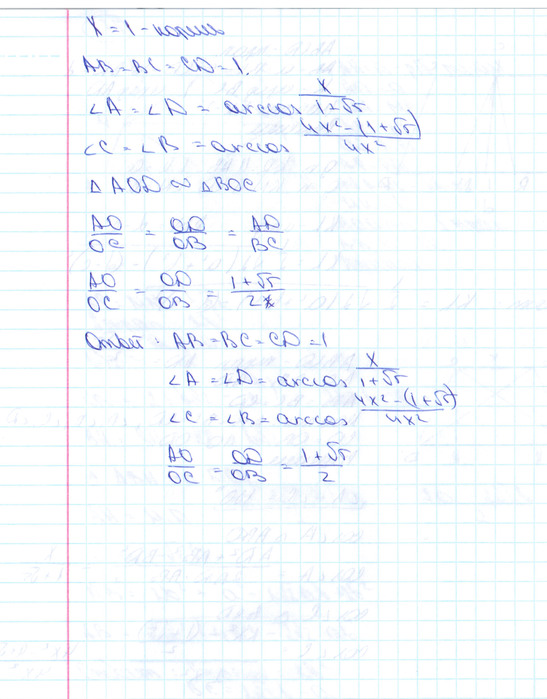 X = 1 – корень
AB = BC = CD = 1.
∠A = ∠D = arccos x/(1+√5)
∠C = ∠B = arccos (4x² – (1+√5))/(4x²)
△AOD ∾ △BOC
AO/OC = OD/OB = AD/BC
AO/OC = OD/OB = (1+√5)/2x
Ответ: AB = BC = CD = 1
∠A = ∠D = arccos x/(1+√5)
∠C = ∠B = arccos (4x² – (1+√5))/(4x²)
AO/OC = OD/OB = (1+√5)/2